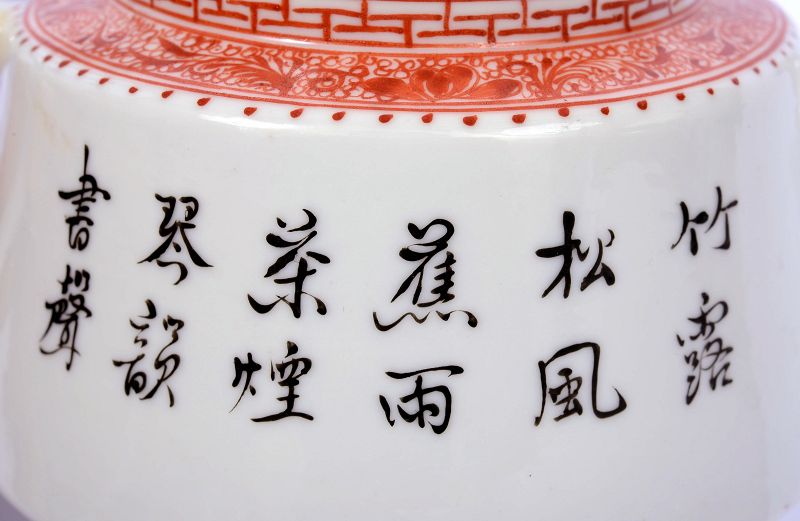 竹露
松風
蕉雨
茶煙
琴韻
書聲